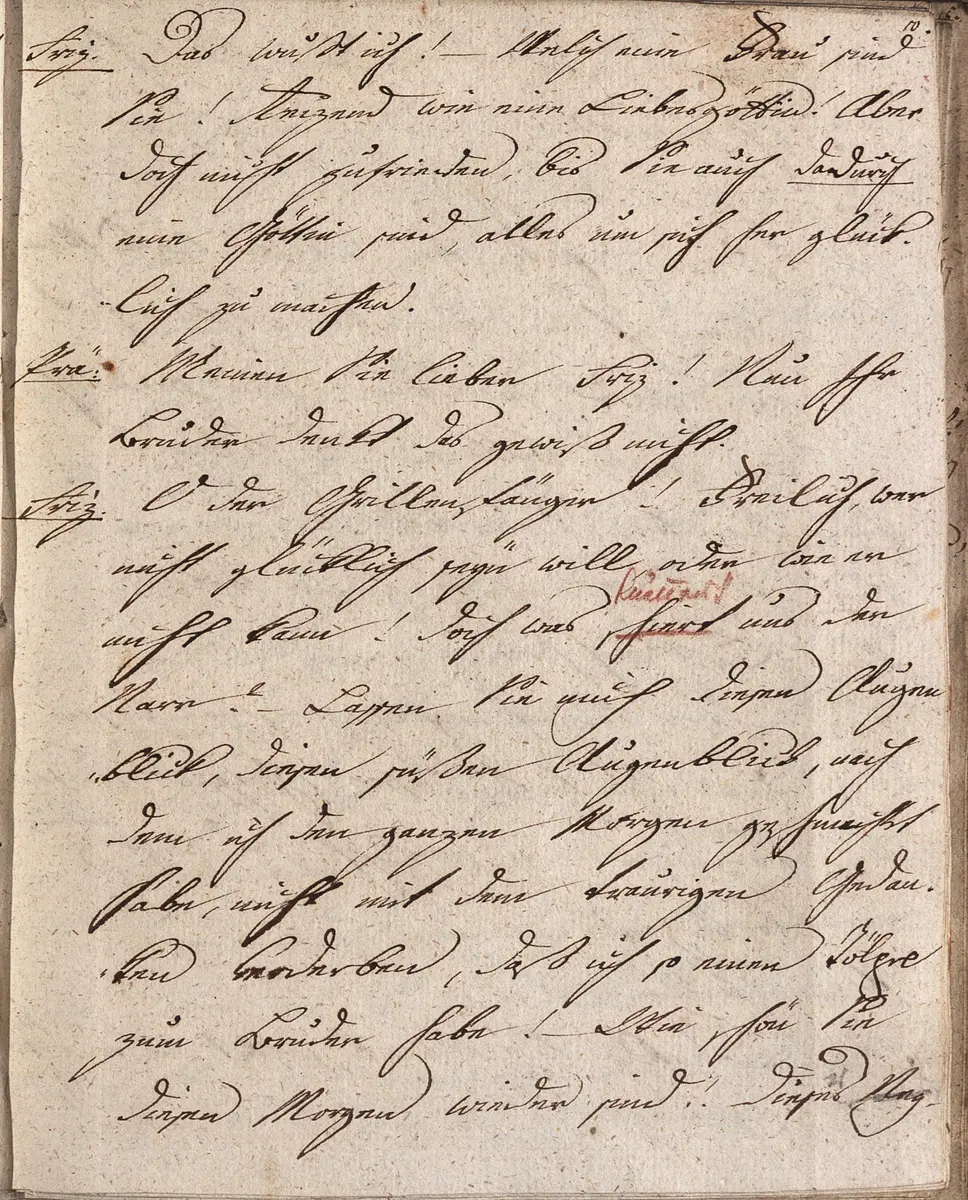 10.
Friz. Das wußt ich! – Welch eine Frau sind
Sie! Reizend wie eine Liebesgöttin! Aber
doch nicht zufrieden, bis Sie auch dadurch
eine Göttin sind, alles um sich her glück-
lich zu machen.
Prä: Meinen Sie lieber Friz! Nun Ihr
Bruder denkt das gewiß nicht.
Friz. O der Grillenfänger! Freilich, wer
nicht glücklich seyn will oder wie er
nicht kann! Doch was schiert uns der
Narr? – Lassen Sie mich diesen Augen
blick, diesen süßen Augenblick, nach
dem ich den ganzen Morgen geschmachtet
habe, nicht mit dem traurigen Gedan-
ken verderben, daß ich so einen Tölpel
zum Bruder habe! – Wie schön Sie
diesen Morgen wieder sind! Dieses Neg-